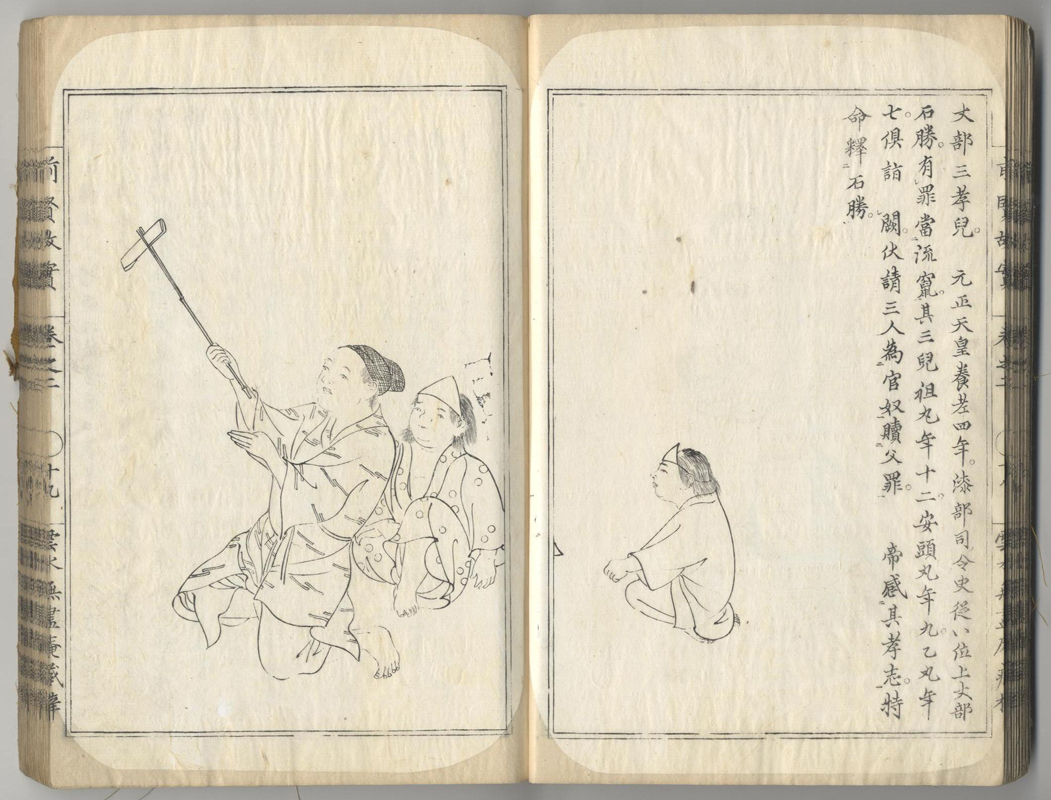 丈部三孝兒。 元正天皇養老四年。漆部司令史從八位上丈部
石勝。有罪當流竄。其三兒祖丸年十二。安頭丸年九。乙丸年
七。俱詣 闕。伏請三人為官奴贖父罪。 帝感其孝志。特
命釋石勝。
前賢故實
卷之二
十九
雲水無盡庵藏